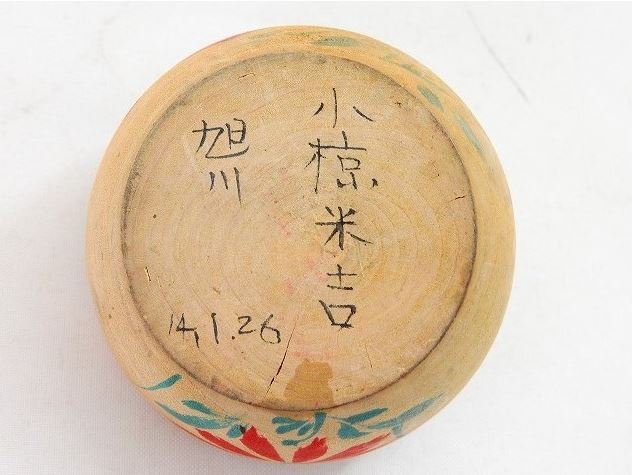 小椋米吉
旭川
14.1.26